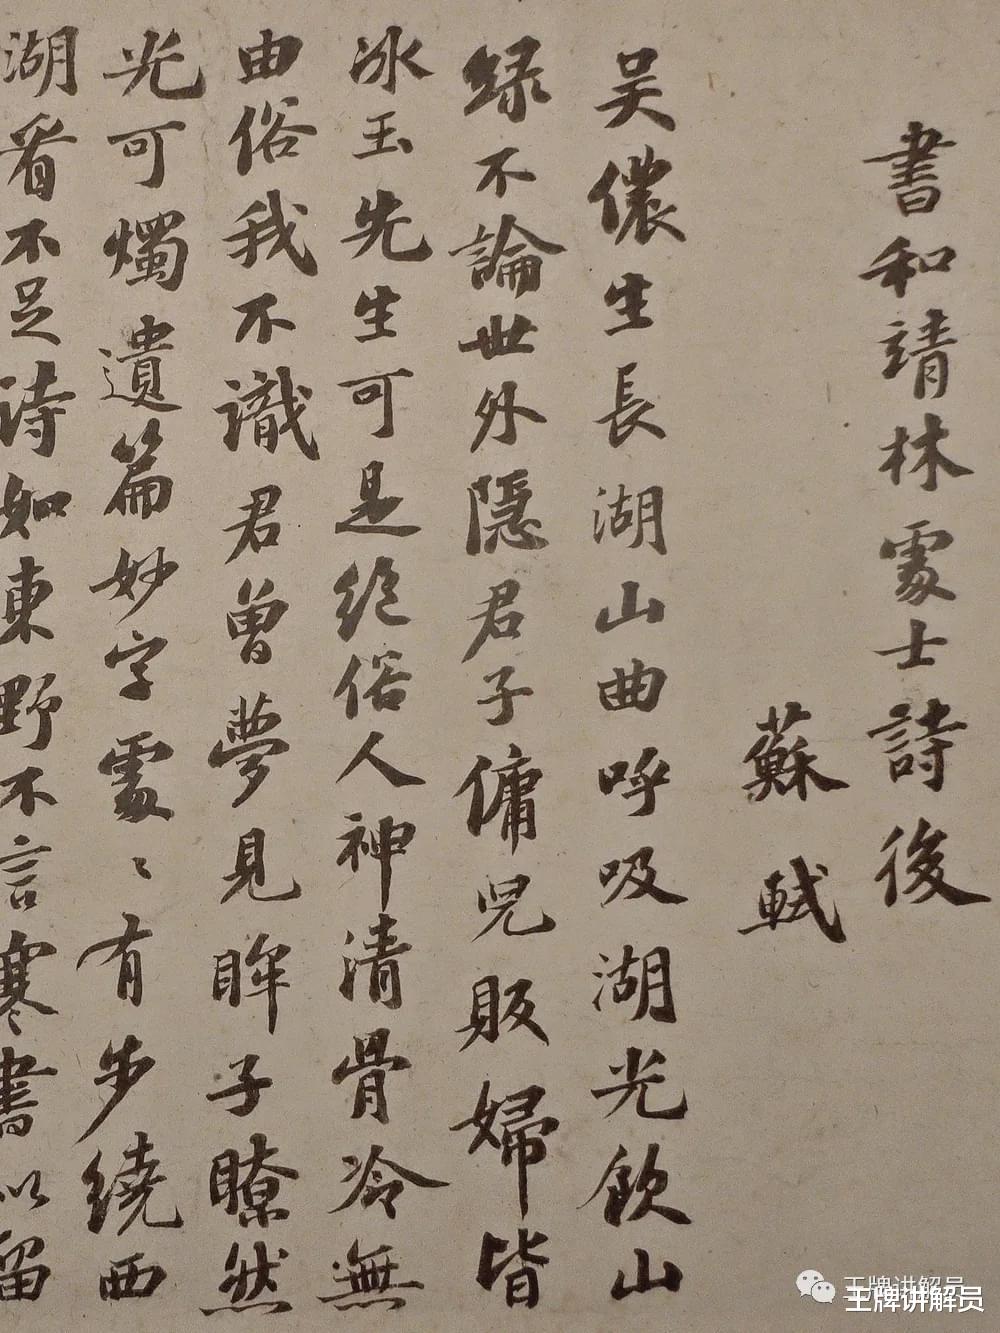 書和靖林處士詩後
蘇軾
吴儂生長湖山曲呼吸湖光飲山
緑不論世外隱君子傭兒販婦皆
冰玉先生可是絶俗人神清骨冷無
由俗我不識君曾夢見眸子瞭然
光可燭遺篇妙字處〻有步繞西
湖看不足詩如東野不言寒書似留
王牌讲解员
王牌讲解员